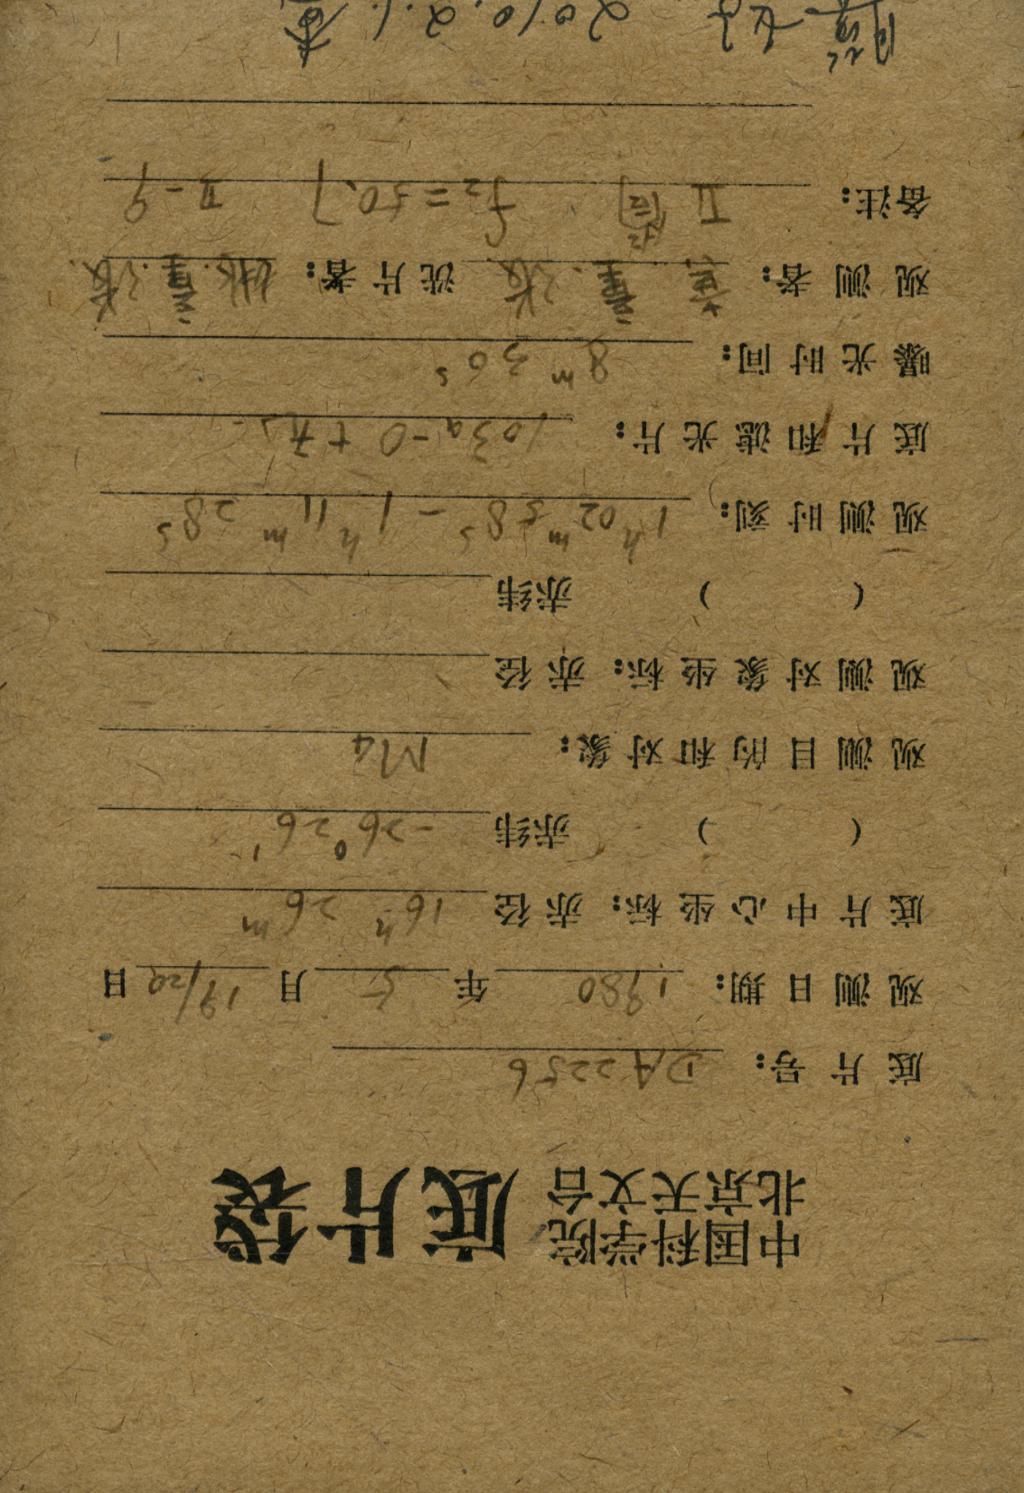 中国科学院
北京天文台 底片袋
底片号: DA2256
观测日期: 1980年5月19/20日
底片中心坐标: 赤径 16h 26m
( ) 赤纬 -26° 26'
观测目的和对象: M4
观测对象坐标: 赤径
( ) 赤纬
观测时刻: 1h 02m 58s - 1h 11m 28s
底片和滤光片: 103a-O +
曝光时间: 8m 30s
观测者: 洗片者:
备注: II f2=50.7 II-9
2010.2.1.